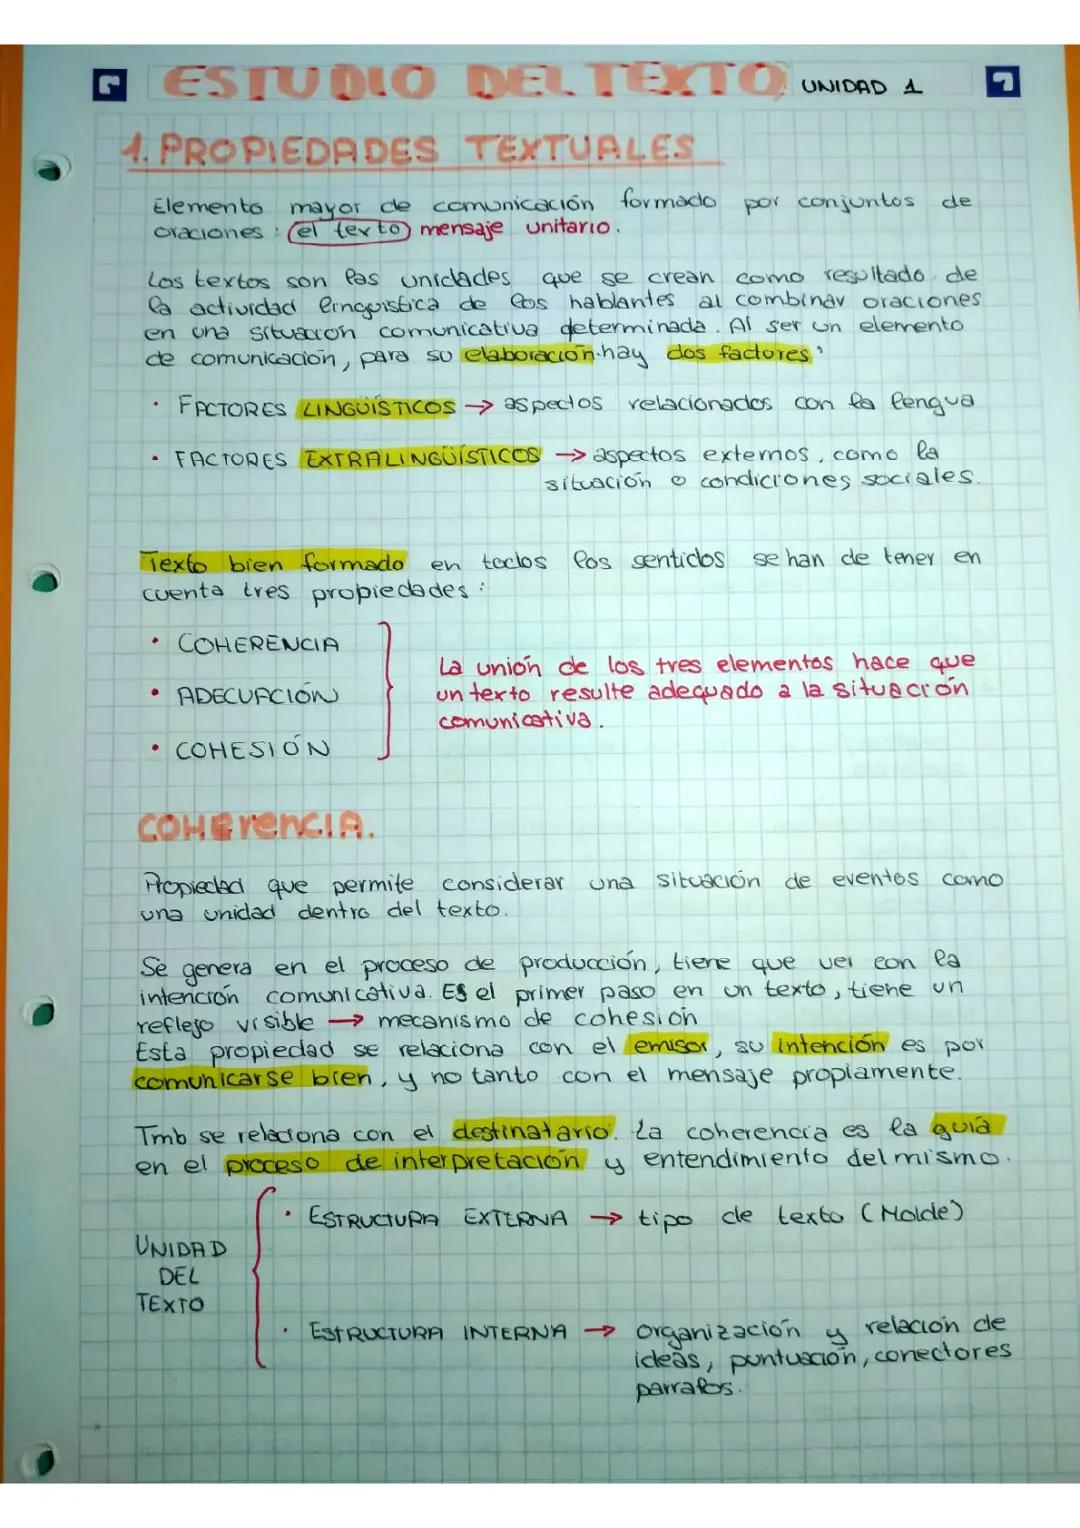 ESTUDIO DEL TEXTO UNIDAD 1
1. PROPIEDADES TEXTUALES
Elemento mayor de comunicación formado por conjuntos de
oraciones : el texto mensaje unitario.
Los textos son las unidades que se crean como resultado de
la actividad lingüística de los hablantes al combinar oraciones
en una situación comunicativa determinada. Al ser un elemento
de comunicación, para su elaboración hay dos factores,
· FACTORES LINGÜÍSTICOS → aspectos relacionados con la lengua
· FACTORES EXTRALINGÜÍSTICOS → aspectos externos, como la
situación o condiciones sociales.
Texto bien formado en todos los sentidos se han de tener en
cuenta tres propiedades :
· COHERENCIA
· ADECUACIÓN
· COHESIÓN
La unión de los tres elementos hace que
un texto resulte adequado a la situación
comunicativa.
COHErencIA.
Propiedad que permite considerar una situación de eventos como
una unidad dentro del texto.
Se genera en el proceso de producción, tiene que ver con la
intención comunicativa. Es el primer paso en un texto, tiene un
reflejo visible → mecanismo de cohesión
Esta propiedad se relaciona con el emisor, su intención es por
comunicarse bien, y no tanto con el mensaje propiamente.
Tmb se relaciona con el destinatario. La coherencia es la guía
en el proceso de interpretación y entendimiento del mismo.
UNIDAD
DEL
TEXTO
· ESTRUCTURA EXTERNA → tipo de texto (Molde)
· ESTRUCTURA INTERNA → organización y relación de
ideas, puntuación, conectores
parrafos.